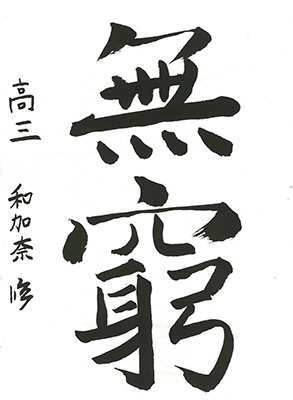 無窮
高三 和加奈 修